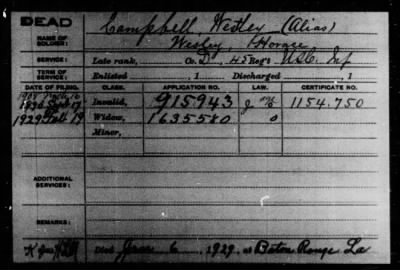 DEAD
NAME OF SOLDIER: Campbell, Westley (Alias)
Wesley, Horace
SERVICE: Late rank, Co. D, 45 Reg't U.S.C. Inf
TERM OF SERVICE: Enlisted , 1 Discharged , 1
DATE OF FILING. CLASS. APPLICATION NO. LAW. CERTIFICATE NO.
Invalid, 915943 1154.750
1929 Feb 19 Widow, 1635580 0
Minor,
ADDITIONAL SERVICES:
REMARKS:
Died June 6, 1929, at Baton Rouge La